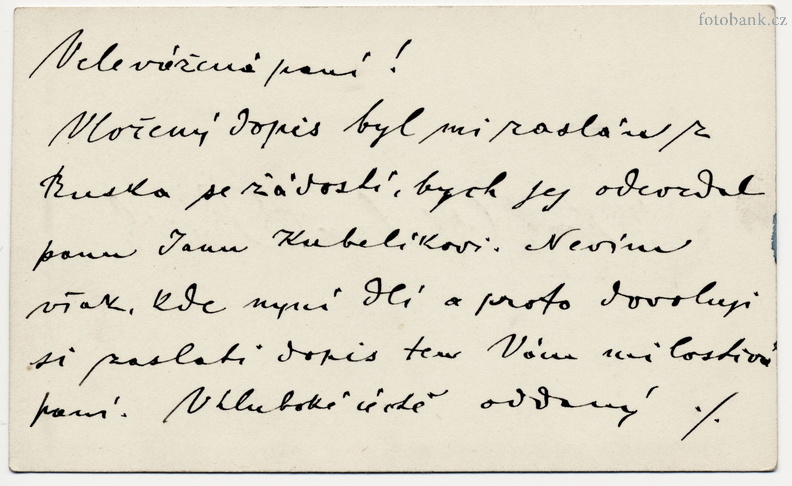 fotobank.cz
Velevážená paní!
Vložený dopis byl mi zaslán z
Ruska se žádostí, bych jej odevzdal
panu Janu Kubelíkovi. Nevím
však, kde nyní dlí a proto dovoluji
si zaslati dopis ten Vám milostivá
paní. V hluboké úctě oddaný ./.